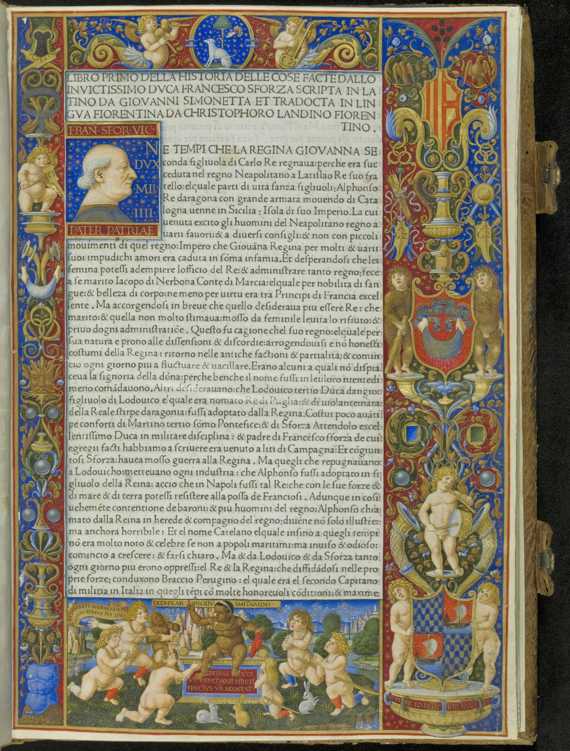 LIBRO PRIMO DELLA HISTORIA DELLE COSE FACTE DALLO
INVICTISSIMO DVCA FRANCESCO SFORZA SCRIPTA IN LA
TINO DA GIOVANNI SIMONETTA ET TRADOCTA IN LIN
GVA FIORENTINA DA CHRISTOPHORO LANDINO FIOREN
TINO.
FRAN. SFOR. VIC
DVX
MLI
IIII
PATER PATRIAE
NE TEMPI CHE LA REGINA GIOVANNA SE
conda figliuola di Carlo Re regnaua: perche era suc
ceduta nel regno Neapolitano a Latislao Re suo fra
tello: elquale parti di uita sanza figliuoli: Alphonso
Re daragona con grande armata mouendo di Cata
logna uenne in Sicilia: Isola di suo Imperio. La cui
uenuta excito gli huomini del Neapolitano regno a
uarii fauori: & a diuersi consigli: & non con piccoli
mouimenti di quel regno: Impero che Giouāna Regina per molti & uarii
suoi impudichi amori era caduta in sōma infamia. Et desperandosi che les
femina potessi adempiere lofficio del Re: & administrare tanto regno: fece
a se marito Iacopo di Nerbona Conte di Marcia: elquale per nobilita di san
gue: & belleza di corpo: ne meno per uirtu era tra Principi di Francia excel
lente. Ma accorgendosi in breue che quello desideraua piu essere Re: che
marito: & quella non molto stimaua: mosso da feminile leuita lo rifiuto: &
priuo dogni administratiōe. Questo fu cagione chel suo regno: elquale per
sua natura e prono alle dissensioni & discordie: arrogendouisi e nō honesti
costumi della Regina: ritorno nelle antiche factioni & partialita: & comin
cio ogni giorno piu a fluctuare & uacillare. Erano alcuni a quali nō dispia
ceua la signoria della dōna: perche benche il nome fussi in lei: loro niente di
meno comādauono. Altri desiderauono che Lodouico tertio Duca dangio:
figliuolo di Lodouico elquale era nomato Re di Puglia: & di uiolante nata
della Reale stirpe daragonia: fussi adoptato dalla Regina: Costui poco auāti
pe conforti di Martino tertio sōmo Pontefice: & di Sforza Attendolo excel
lentissimo Duca in militare disciplina: & padre di Francesco sforza de cui
egregii facti habbiamo a scriuere era uenuto a liti di Campagna: Et cōgiun
tosi Sforza: hauea mosso guerra alla Regina. Ma quegli che repugnauano
a Lodouico: metteuano ogni industria: che Alphonso fussi adoptato in fi
gliuolo della Reina: accio che in Napoli fussi tal Re: che con le sue forze &
di mare & di terra potessi resistere alla possa de Franciosi. Adunque in cosi
uehemēte contentione de baroni: & piu huomini del regno: Alphonso chia
mato dalla Reina in herede & compagno del regno: diuēne nō solo illustre:
ma anchora horribile: Et el nome Catelano equale insino a quegli tempi
nō era molto noto & celebre se non a popoli maritimi: ma inuiso & odioso:
comincio a crescere: & farsi chiaro. Ma & da Lodouico & da Sforza tanto
ogni giorno piu erono oppressi: el Re & la Regina: che diffidādosi nelle pro
prie forze: conduxono Braccio Perugino: el quale era el secondo Capitano
di militia in Italia in quegli tēpi cō molte honoreuoli cōditioni: & maxime